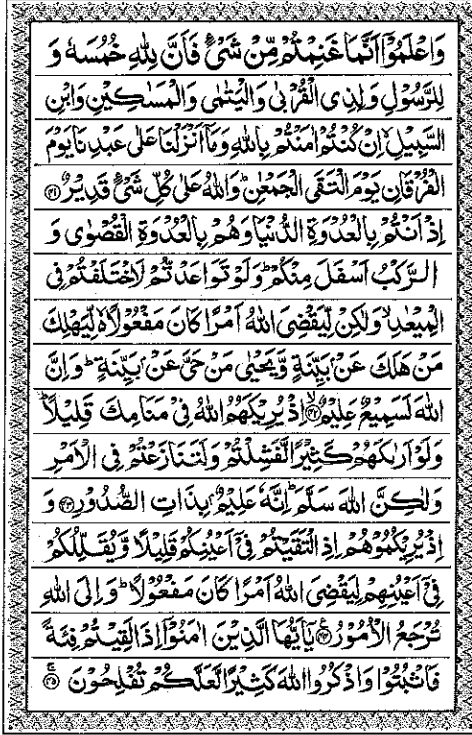 وَاعْلَمُوْۤا اَنَّمَا غَنِمْتُمْ مِّنْ شَیْءٍ فَاَنَّ لِلّٰهِ خُمُسَهٗ وَ
لِلرَّسُوْلِ وَلِذِی الْقُرْبٰی وَالْیَتٰمٰی وَالْمَسٰكِیْنِ وَابْنِ
السَّبِیْلِ ۙ اِنْ كُنْتُمْ اٰمَنْتُمْ بِاللّٰهِ وَمَاۤ اَنْزَلْنَا عَلٰی عَبْدِنَا یَوْمَ
الْفُرْقَانِ یَوْمَ الْتَقَی الْجَمْعٰنِ ؕ وَاللّٰهُ عَلٰی كُلِّ شَیْءٍ قَدِیْرٌ ﴿۴۱﴾
اِذْ اَنْتُمْ بِالْعُدْوَةِ الدُّنْیَا وَهُمْ بِالْعُدْوَةِ الْقُصْوٰی وَ
الرَّكْبُ اَسْفَلَ مِنْكُمْ ؕ وَلَوْ تَوَاعَدْتُّمْ لَاخْتَلَفْتُمْ فِی
الْمِیْعٰدِ ۙ وَلٰكِنْ لِّیَقْضِیَ اللّٰهُ اَمْرًا كَانَ مَفْعُوْلًا ۙ۬ لِّیَهْلِكَ
مَنْ هَلَكَ عَنْۢ بَیِّنَةٍ وَّیَحْیٰی مَنْ حَیَّ عَنْۢ بَیِّنَةٍ ؕ وَاِنَّ
اللّٰهَ لَسَمِیْعٌ عَلِیْمٌ ﴿ۙ۴۲﴾ اِذْ یُرِیْكَهُمُ اللّٰهُ فِیْ مَنَامِكَ قَلِیْلًا ؕ
وَلَوْ اَرٰىكَهُمْ كَثِیْرًا لَّفَشِلْتُمْ وَلَتَنَازَعْتُمْ فِی الْاَمْرِ
وَلٰكِنَّ اللّٰهَ سَلَّمَ ؕ اِنَّهٗ عَلِیْمٌۢ بِذَاتِ الصُّدُوْرِ ﴿۴۳﴾ وَ
اِذْ یُرِیْكُمُوْهُمْ اِذِ الْتَقَیْتُمْ فِیْۤ اَعْیُنِكُمْ قَلِیْلًا وَّیُقَلِّلُكُمْ
فِیْۤ اَعْیُنِهِمْ لِیَقْضِیَ اللّٰهُ اَمْرًا كَانَ مَفْعُوْلًا ؕ وَاِلَی اللّٰهِ
تُرْجَعُ الْاُمُوْرُ ﴿۴۴﴾ یٰۤاَیُّهَا الَّذِیْنَ اٰمَنُوْۤا اِذَا لَقِیْتُمْ فِئَةً
فَاثْبُتُوْا وَاذْكُرُوا اللّٰهَ كَثِیْرًا لَّعَلَّكُمْ تُفْلِحُوْنَ ﴿ۚ۴۵﴾